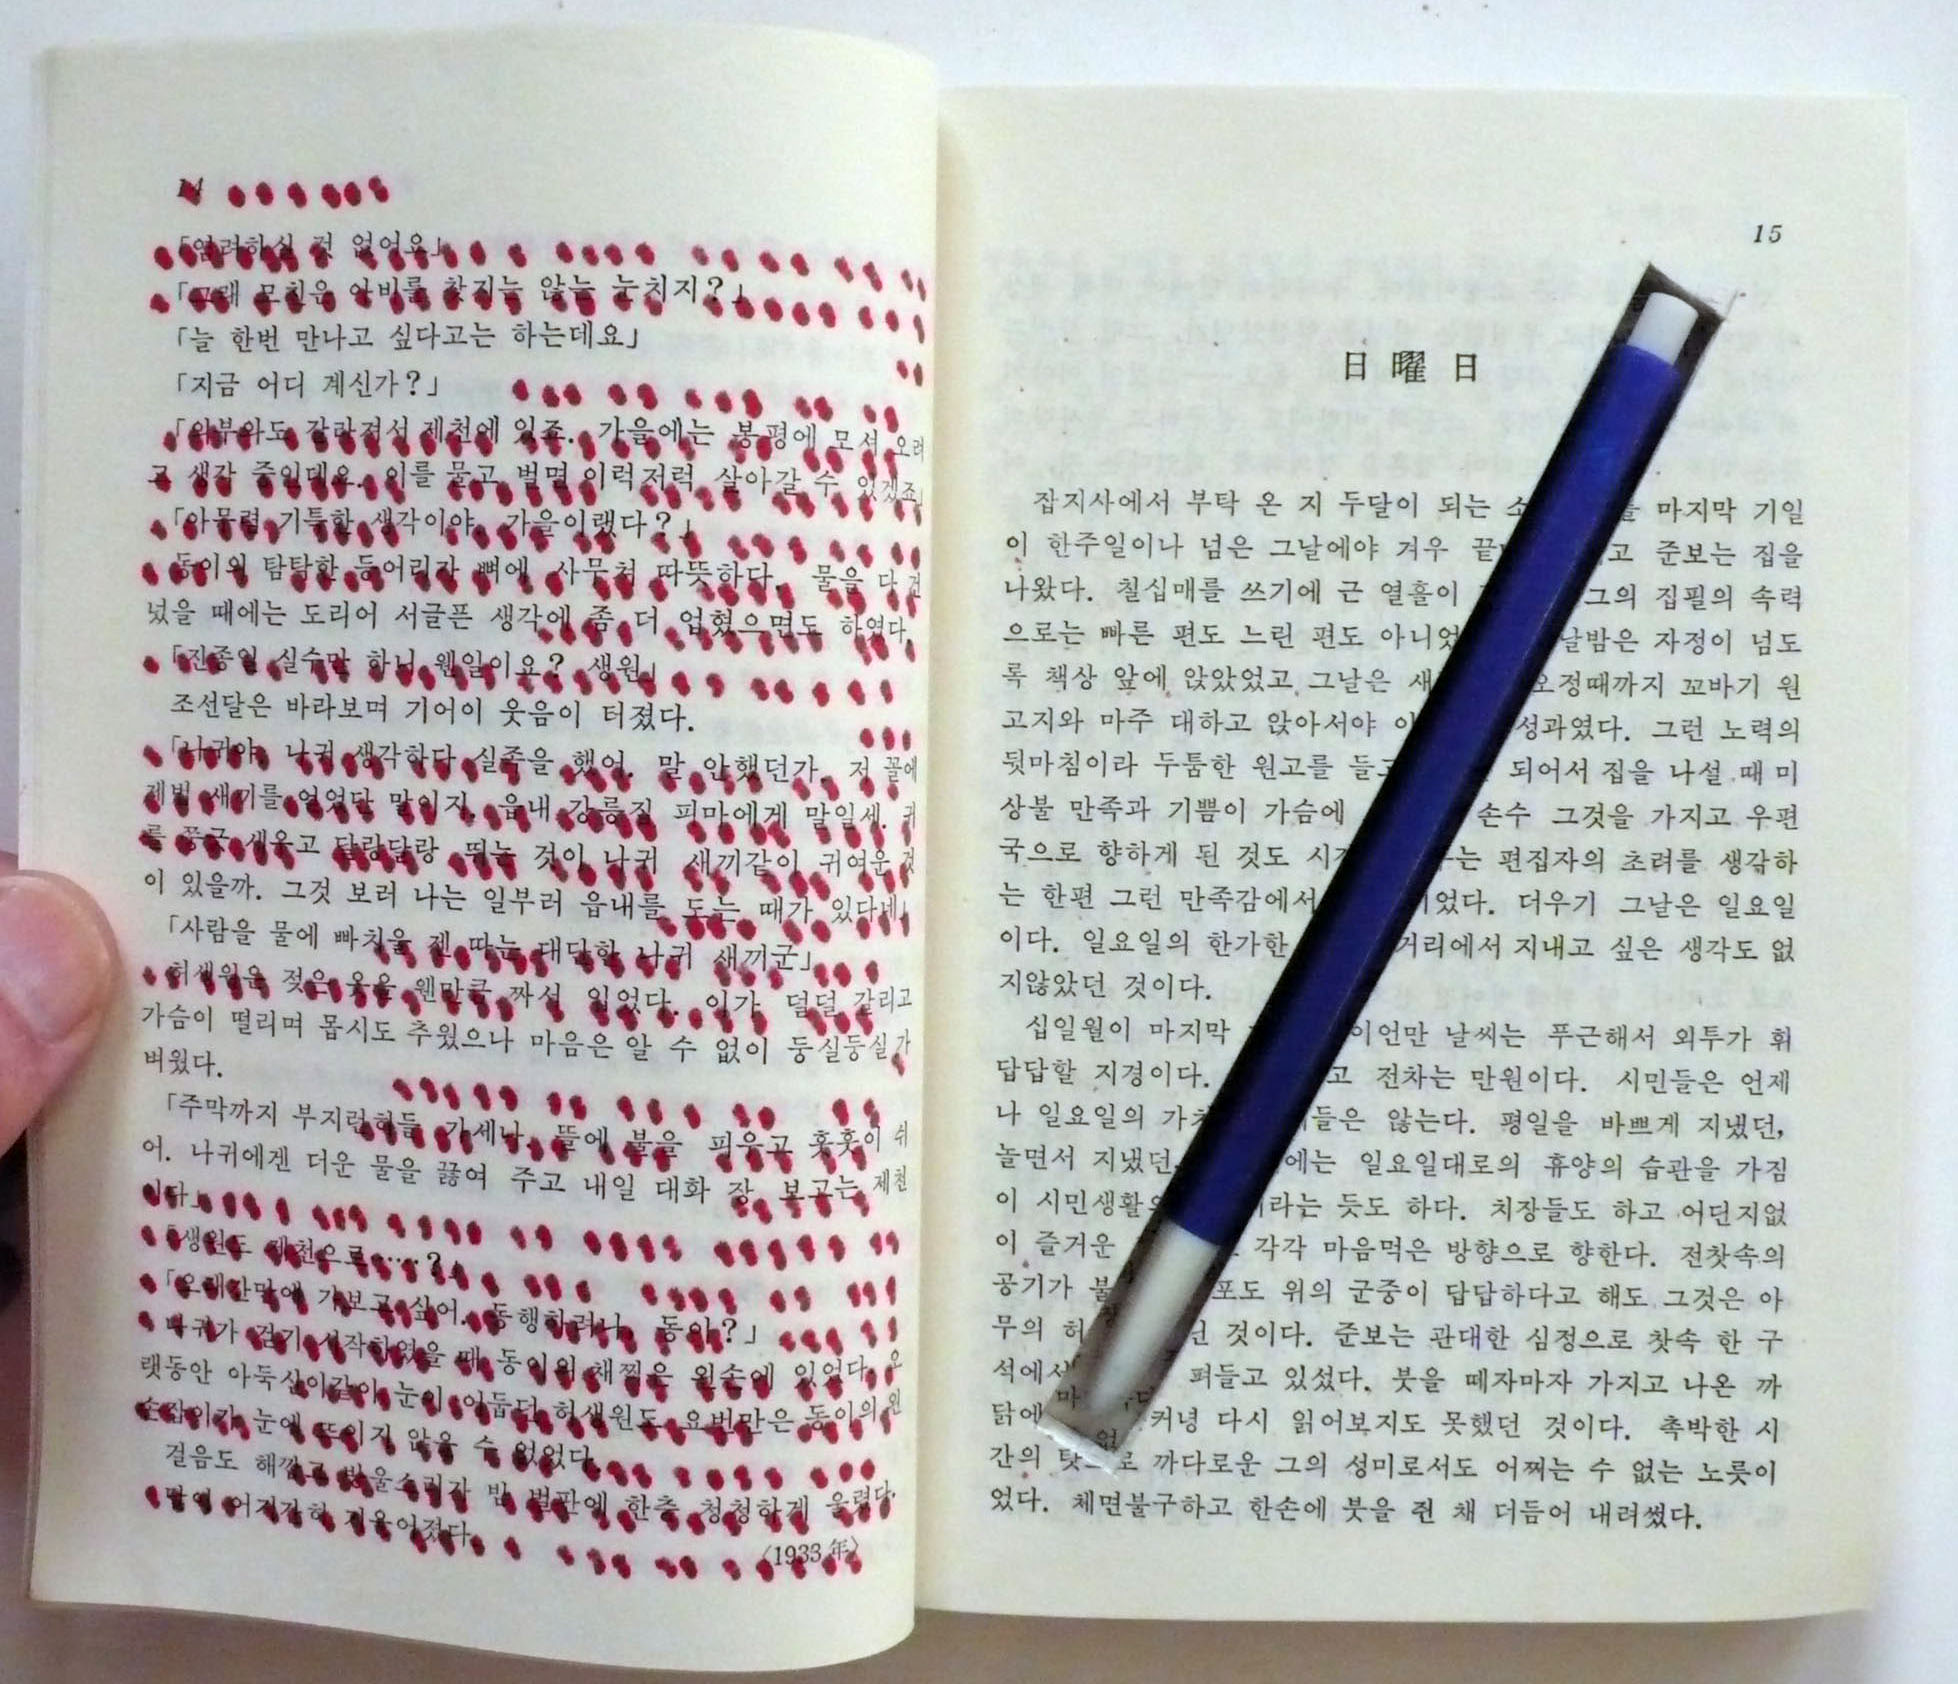 14
「염려하실 것 없어요」
「그래 모친은 아비를 찾지는 않는 눈치지?」
「늘 한번 만나고 싶다고는 하는데요」
「지금 어디 계신가?」
「의부와도 갈라져서 제천에 있죠. 가을에는 봉평에 모셔 오려
고 생각 중인데요. 이를 물고 벌면 이럭저럭 살아갈 수 있겠죠」
「아무렴 기특한 생각이야. 가을이랬다?」
동이의 탐탁한 등어리가 뼈에 사무쳐 따뜻하다. 물을 다 건
넜을 때에는 도리어 서글픈 생각에 좀 더 업혔으면도 하였다.
「진종일 실수만 하니 웬일이요? 생원」
조선달은 바라보며 기어이 웃음이 터졌다.
「나귀야. 나귀 생각하다 실족을 했어. 말 안했던가. 저 꼴에
제법 새끼를 얻었단 말이지. 읍내 강릉집 피마에게 말일세. 귀
를 쫑긋 세우고 달랑달랑 뛰는 것이 나귀 새끼같이 귀여운 것
이 있을까. 그것 보러 나는 일부러 읍내를 도는 때가 있다네」
「사람을 물에 빠치울 젠 따는 대단한 나귀 새끼군」
허생원은 젖은 옷을 웬만큼 짜서 입었다. 이가 덜덜 갈리고
가슴이 떨리며 몹시도 추웠으나 마음은 알 수 없이 둥실둥실 가
벼웠다.
「주막까지 부지런히들 가세나. 뜰에 불을 피우고 훗훗이 쉬
어. 나귀에겐 더운 물을 끓여 주고 내일 대화 장 보고는 제천
이다」
「생원도 제천으로……?」
「오래간만에 가보고 싶어. 동행하려나, 동이?」
나귀가 걷기 시작하였을 때 동이의 채찍은 왼손에 있었다. 오
랫동안 아둑신이같이 눈이 어둡던 허생원도 요번만은 동이의 왼
손잡이가 눈에 뜨이지 않을 수 없었다.
걸음도 해깝고 방울소리가 밤 벌판에 한층 청청하게 울렸다.
달이 어지간히 기울어졌다.
〈1933年〉
15
日曜日
잡지사에서 부탁 온 지 두달이 되는 마지막 기일
이 한주일이나 넘은 그날에야 겨우 준보는 집을
나왔다. 칠십매를 쓰기에 근 열흘이 그의 집필의 속력
으로는 빠른 편도 느린 편도 아니었 날밤은 자정이 넘도
록 책상 앞에 앉았었고 그날은 오정때까지 꼬바기 원
고지와 마주 대하고 앉아서야 성과였다. 그런 노력의
뒷마침이라 두툼한 원고를 되어서 집을 나설 때 미
상불 만족과 기쁨이 가슴에 손수 그것을 가지고 우편
국으로 향하게 된 것도 편집자의 초려를 생각하
는 한편 그런 만족감에서 이었다. 더우기 그날은 일요일
이다. 일요일의 한가한 거리에서 지내고 싶은 생각도 없
지않았던 것이다.
십일월이 마지막 이언만 날씨는 푸근해서 외투가 휘
답답할 지경이다. 고 전차는 만원이다. 시민들은 언제
나 일요일의 들은 않는다. 평일을 바쁘게 지냈던,
놀면서 지냈던, 에는 일요일대로의 휴양의 습관을 가짐
이 시민생활 이라는 듯도 하다. 치장들도 하고 어딘지없
이 즐거운 각각 마음먹은 방향으로 향한다. 전찻속의
공기가 포도 위의 군중이 답답하다고 해도 그것은 아
무의 것이다. 준보는 관대한 심정으로 찻속 한 구
석에서 펴들고 있섰다. 붓을 떼자마자 가지고 나온 까
닭에 커녕 다시 읽어보지도 못했던 것이다. 촉박한 시
간의 탓으로 까다로운 그의 성미로서도 어찌는 수 없는 노릇이
었다. 체면불구하고 한손에 붓을 쥔 채 더듬어 내려썼다.